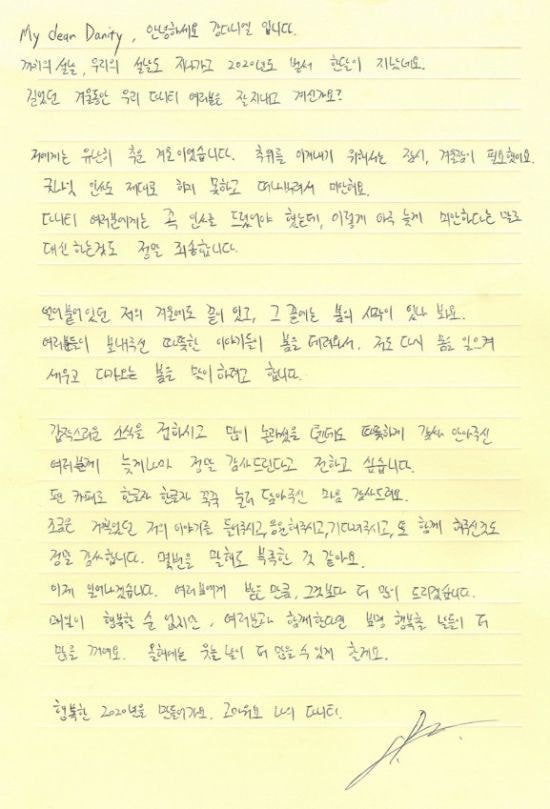 My dear Danity, 안녕하세요 강다니엘 입니다.
까치의 설날, 우리의 설날도 지나가고 2020년도 벌써 한달이 지났네요.
길었던 겨울동안 우리 다니티 여러분 잘 지내고 계신가요?
저에게는 유난히 추운 겨울이었습니다. 추위를 이겨내기 위해서는 잠시, 겨울잠이 필요했어요.
그나마 인사도 제대로 하지 못하고 떠나버려서 미안해요.
다니티 여러분에게는 꼭 인사를 드렸어야 했는데, 이렇게 아주 늦게 미안하다는 말로
대신 하는것도 정말 죄송합니다.
얼어붙어있던 저의 겨울에도 끝이 있고, 그 끝에는 봄의 시작이 있나 봐요.
여러분들이 보내주신 따뜻한 이야기들이 봄을 데려와서, 저도 다시 몸을 일으켜
세우고 다가오는 봄을 맞이하려고 합니다.
갑작스러운 소식을 접하시고 많이 놀라셨을 텐데도 따뜻하게 감싸 안아주신
여러분께 늦게나마 정말 감사드린다고 전하고 싶습니다.
팬 카페로 한글자 한글자 꾹꾹 눌러 담아주신 마음 감사드려요.
조금은 거칠었던 저의 이야기를 들어주시고, 응원해주시고, 기다려주시고, 또 함께 해주신것도
정말 감사합니다. 몇번을 말해도 부족한 것 같아요.
이제 일어나겠습니다. 여러분에게 받은 만큼, 그것보다 더 많이 드리겠습니다.
매일이 행복할 순 없지만, 여러분과 함께한다면 분명 행복할 날들이 더
많을 거예요. 올해에는 웃는 날이 더 많을 수 있게 할게요.
행복한 2020년을 만들어가요. 고마워요 나의 다니티.